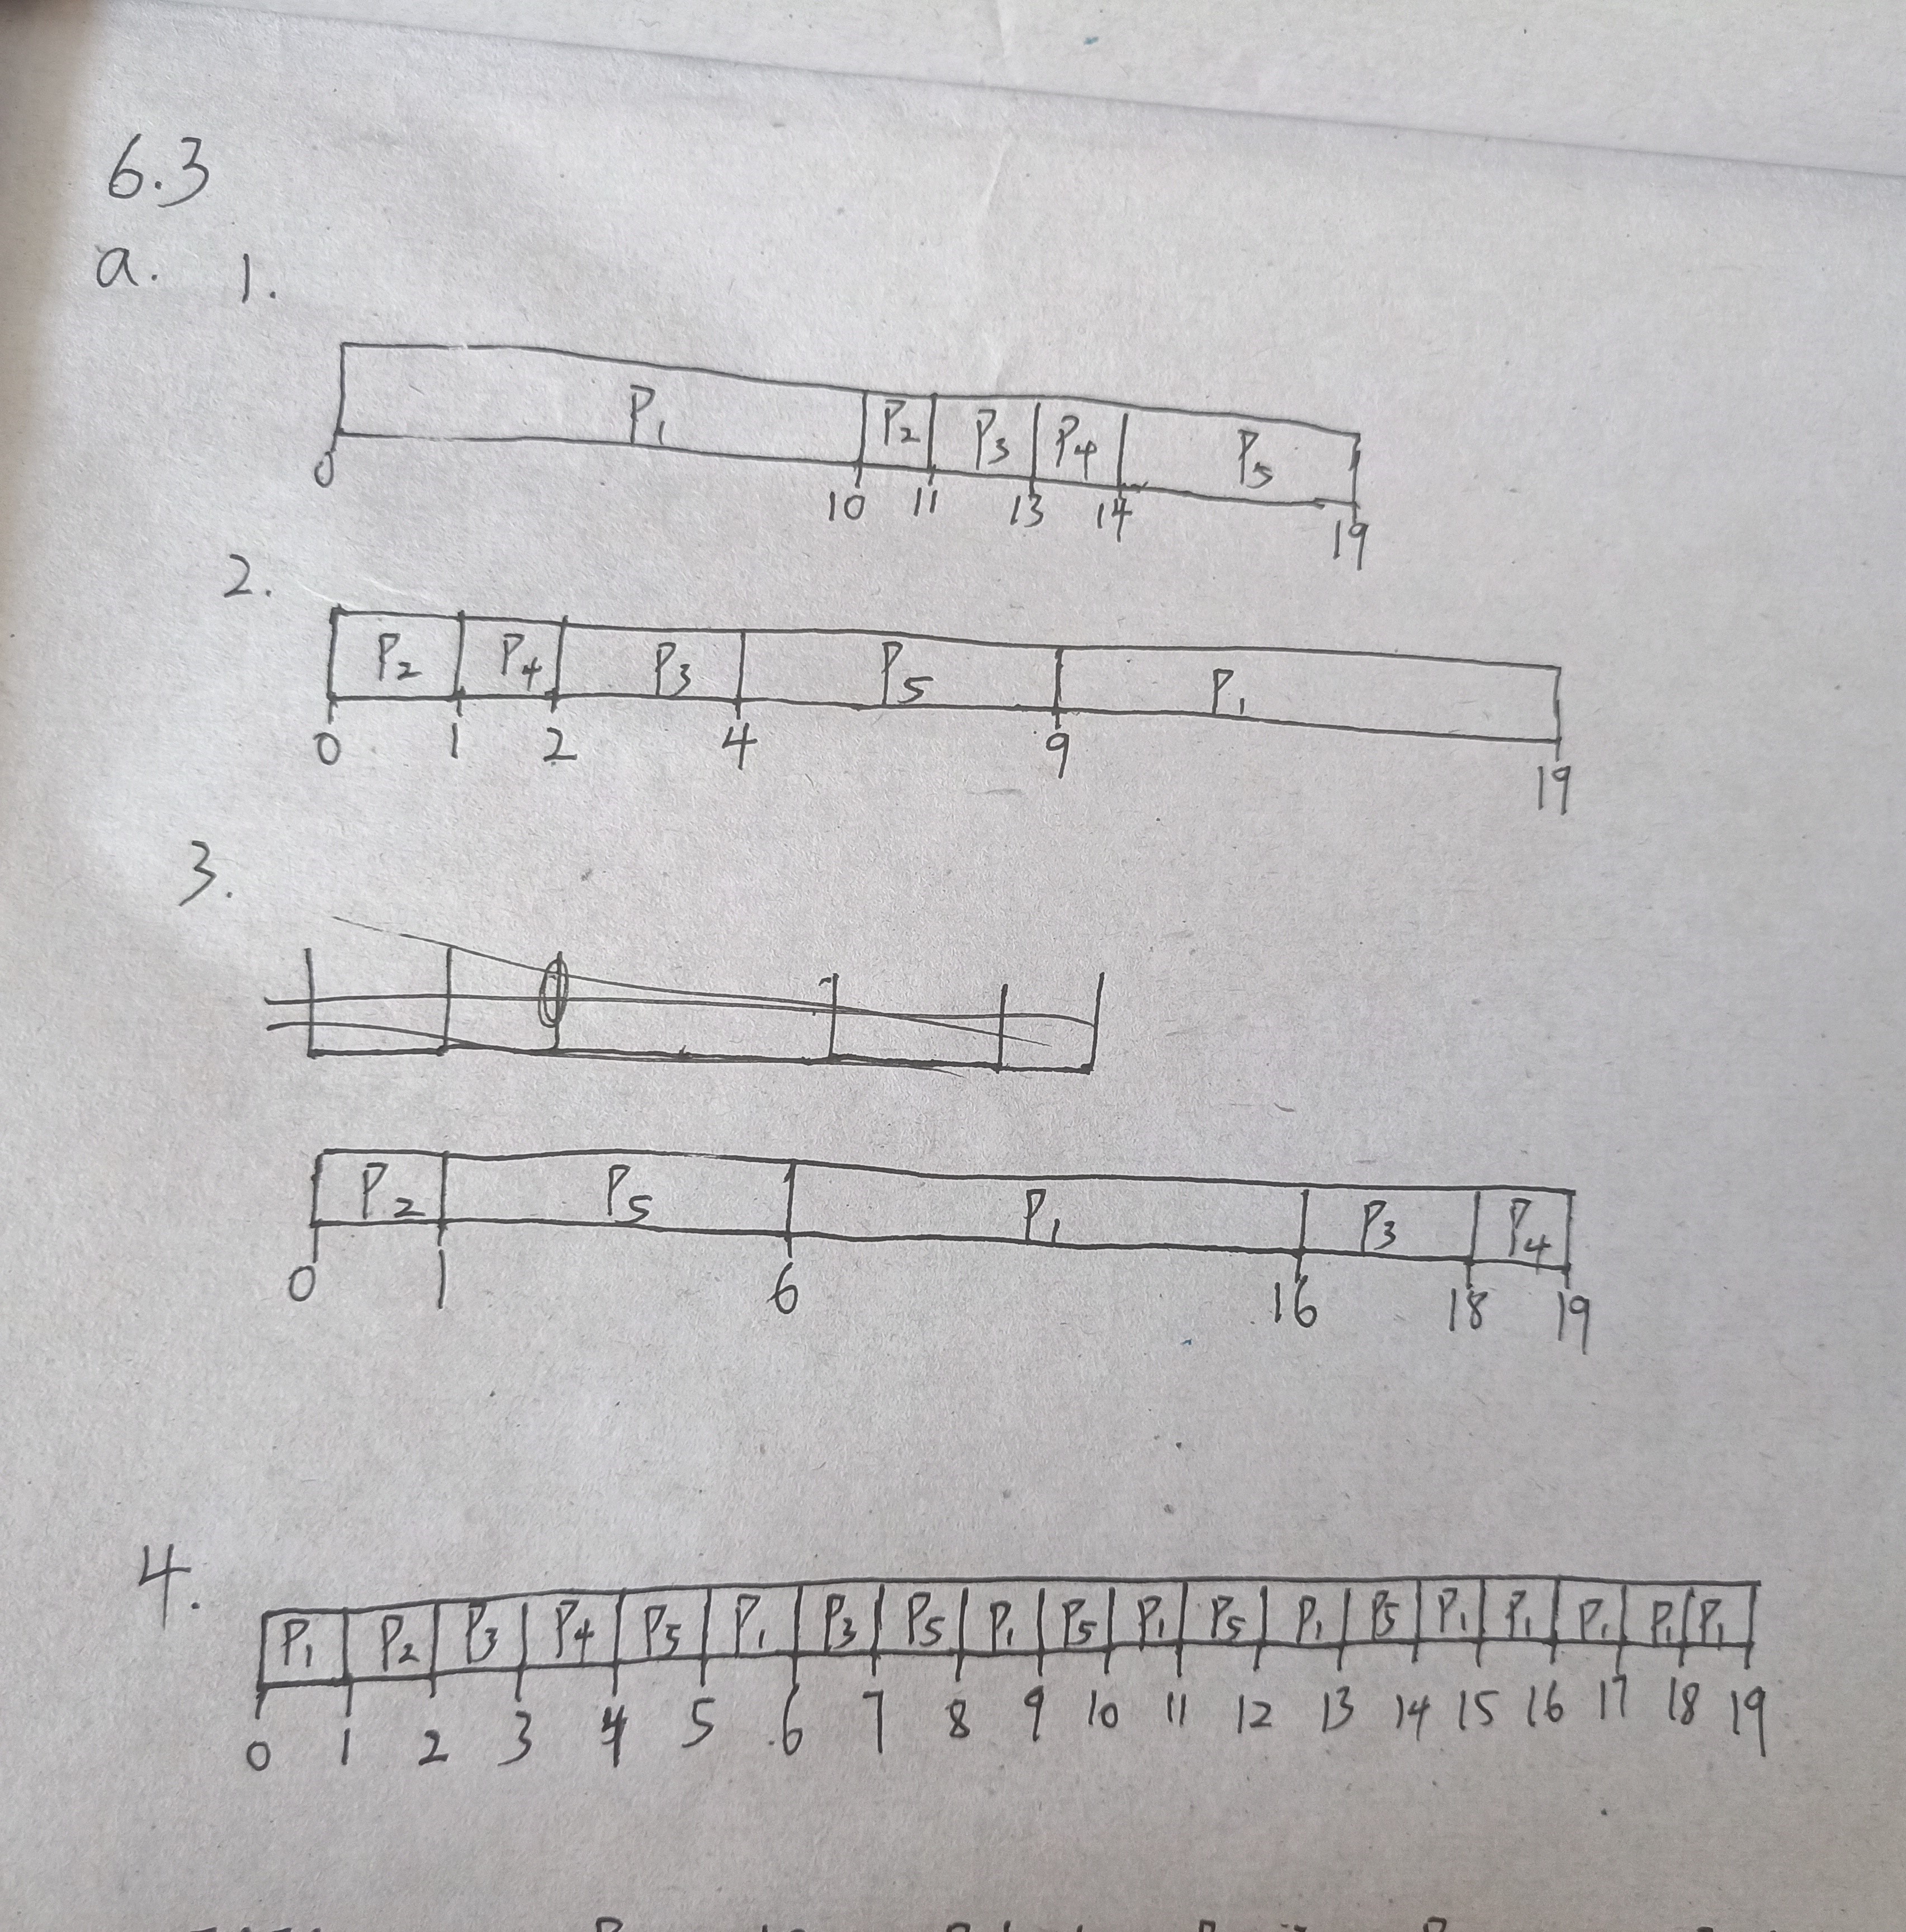 6.3
a. 1.
P₁ P₂ P₃ P₄ P₅
0 10 11 13 14 19
2.
P₂ P₄ P₃ P₅ P₁
0 1 2 4 9 19
3.
P₂ P₅ P₁ P₃ P₄
0 1 6 16 18 19
4.
P₁ P₂ P₃ P₄ P₅ P₁ P₃ P₅ P₁ P₅ P₁ P₅ P₁ P₅ P₁ P₁ P₁ P₁ P₁
0 1 2 3 4 5 6 7 8 9 10 11 12 13 14 15 16 17 18 19